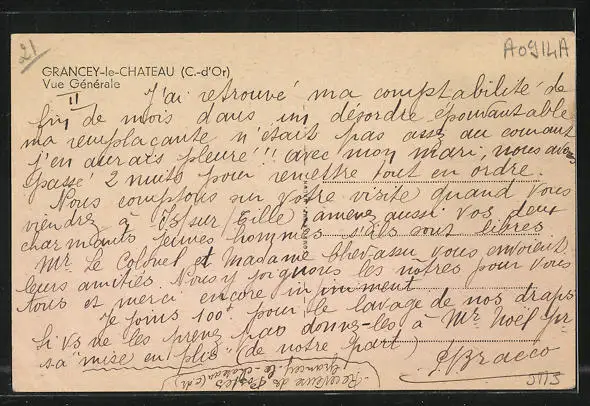 21
A0914A
GRANCEY-le-CHATEAU (C.-d'Or)
Vue Générale
II J'ai retrouvé ma comptabilité de
fin de mois dans un désordre épouvantable
ma remplaçante n'était pas assez au courant
j'en aurais pleuré!!! avec mon mari, nous avons
passé 2 nuits pour remettre tout en ordre.
Nous comptons sur votre visite quand vous
viendrez à Is/sur/Tille, amenez aussi vos deux
charmants jeunes hommes s'ils sont libres
Mr le Colonel et Madame Chevassu vous envoient
leurs amitiés. Nous y joignons les nôtres pour vous
tous et merci encore infiniment
Je joins 100f pour le lavage de nos draps
Si vs ne les prenez pas donnez-les à Mr Noël pr
sa "mise en plis" (de notre part)
Bracco
Receveuse des Postes
Grancey-le-château (C.d'Or)